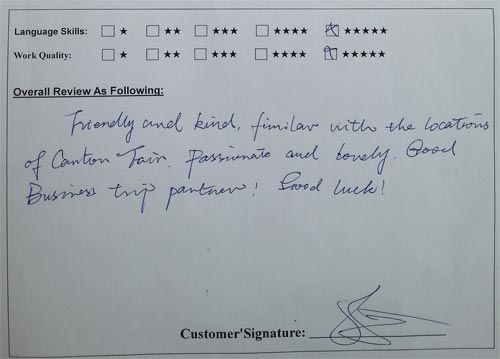 Language Skills: ☐ ★ ☐ ★★ ☐ ★★★ ☐ ★★★★ ☒ ★★★★★
Work Quality: ☐ ★ ☐ ★★ ☐ ★★★ ☐ ★★★★ ☒ ★★★★★
Overall Review As Following:
Friendly and kind. fimilar with the locations
of Canton Fair. Passiunate and lovely. Good
Business trip partner! Good luck!
Customer'Signature: